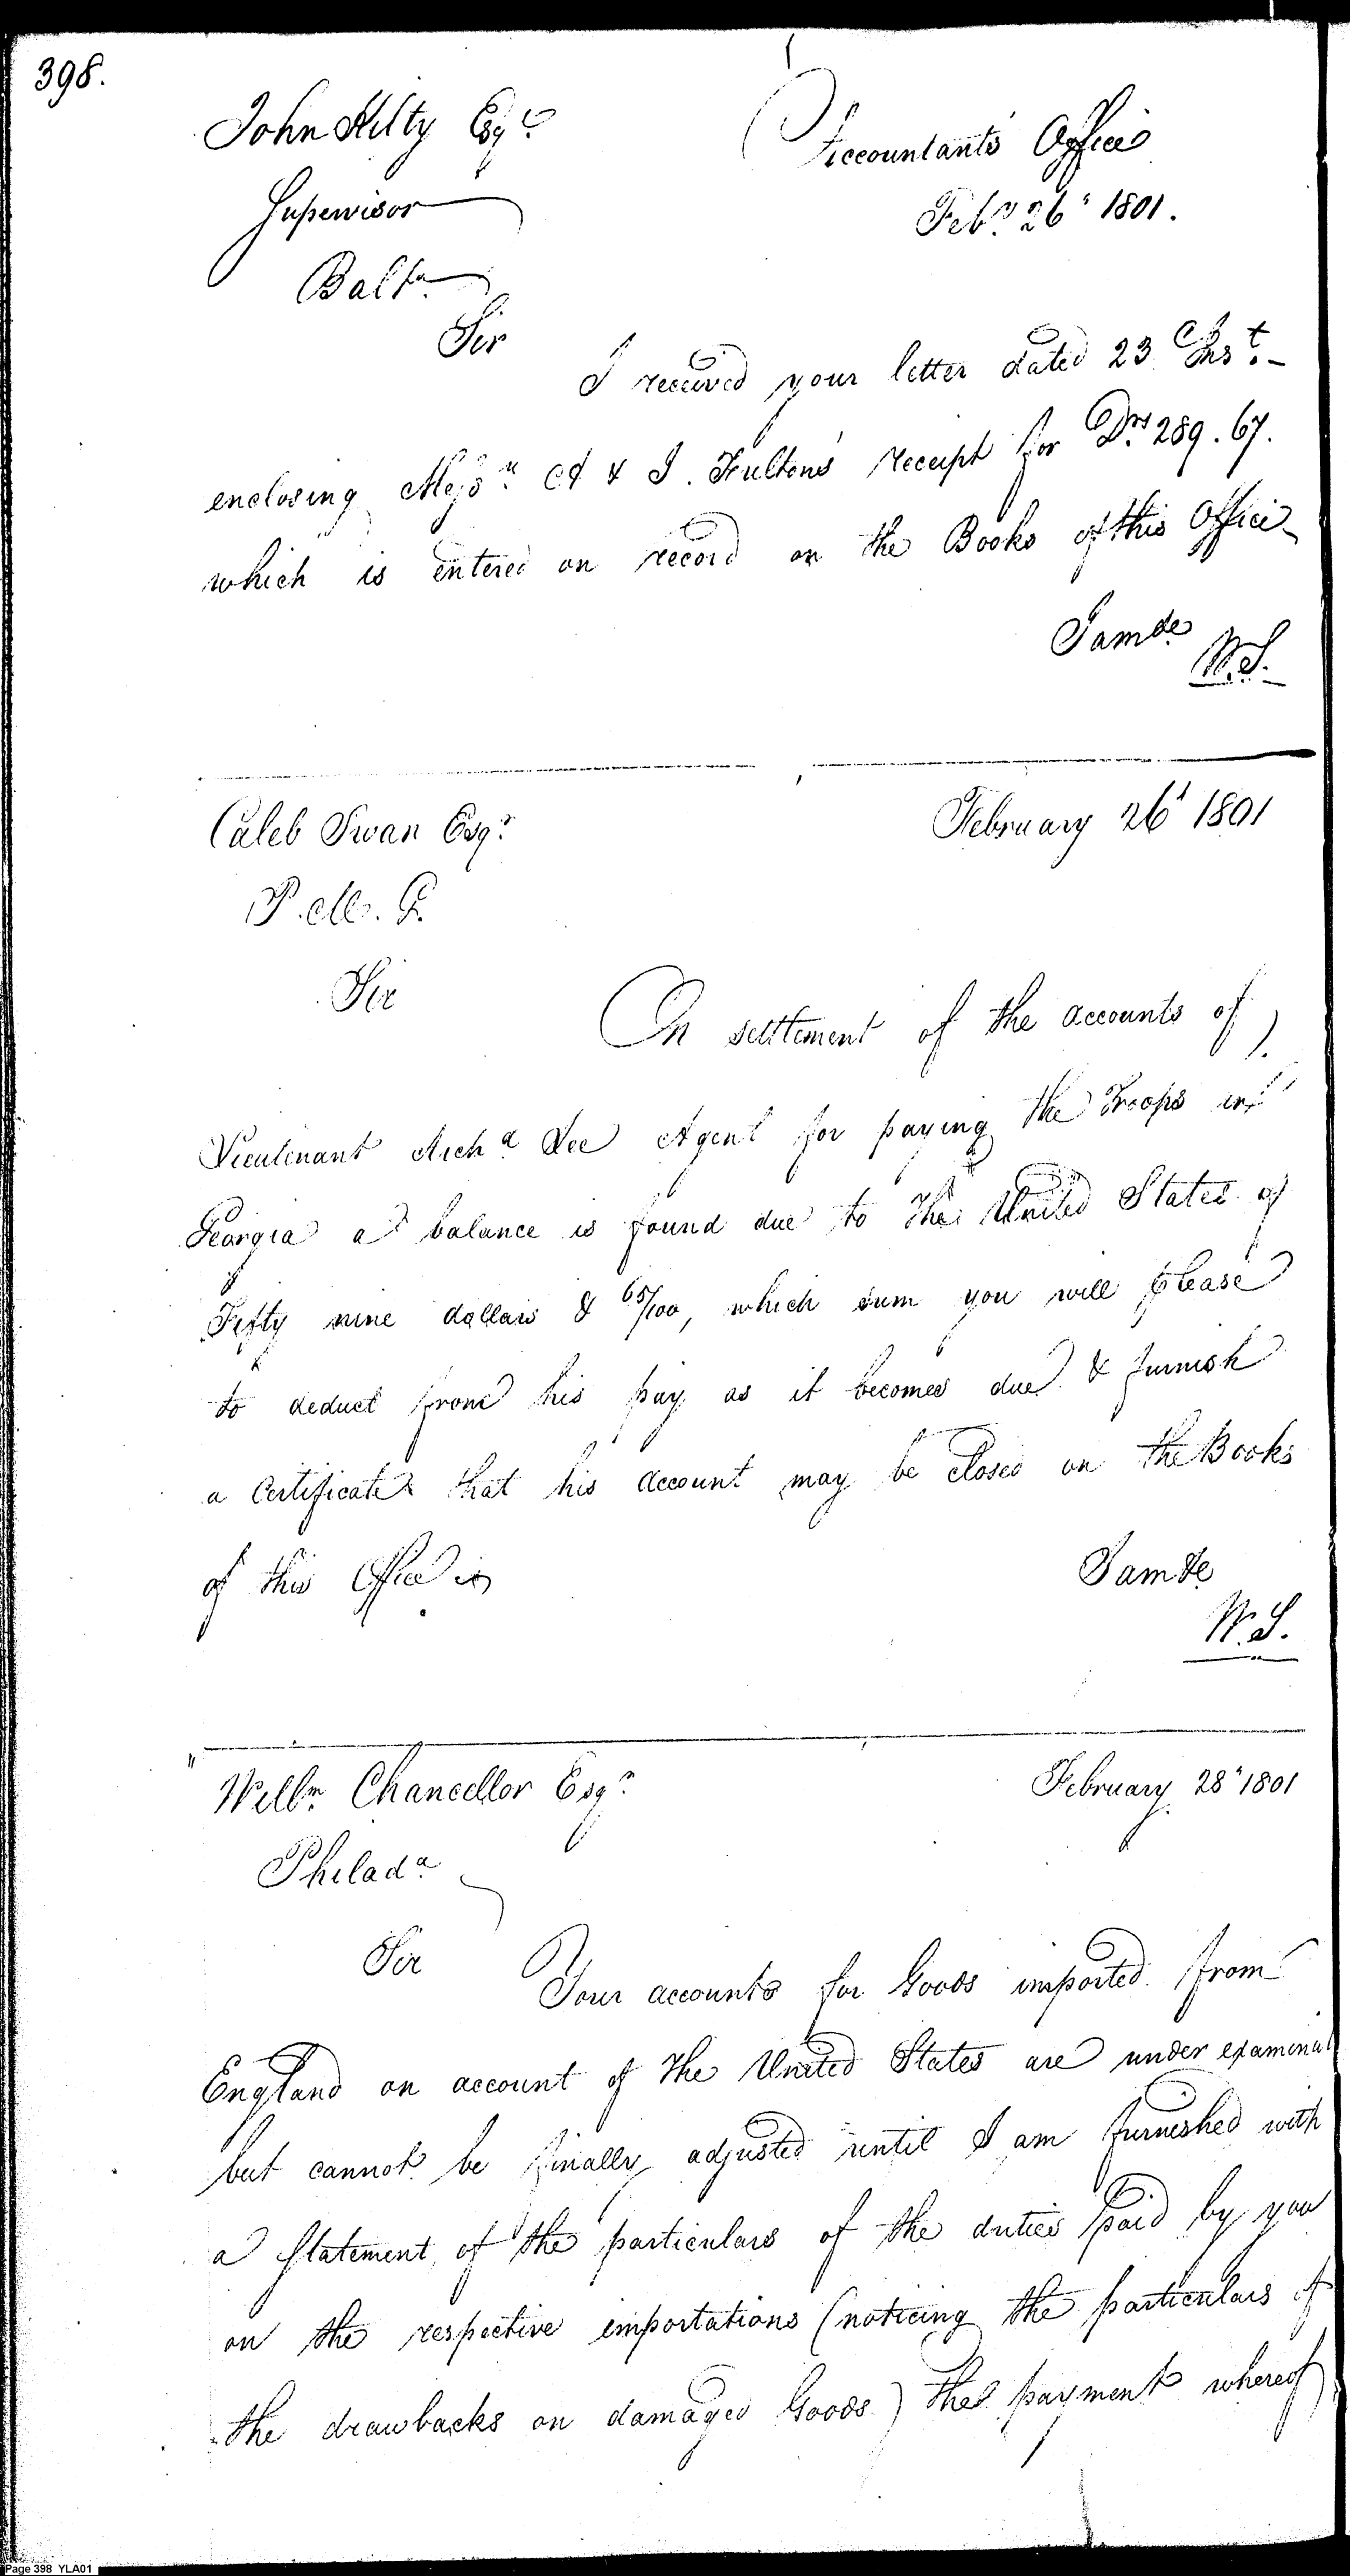 398.
John Kilty Esqr
Accountants Office
Supervisor
Feby. 26: 1801.
Balta.
Sir
I received your letter dated 23 Inst. -
enclosing Messrs. A & J. Fultons receipt for Drs 289.67.
which is entered on record on the Books of this Office
I am &c
W.S.
Caleb Swan Esqr.
February 26' 1801
P. M. G.
Sir
On settlement of the accounts of
Lieutenant Archd. Lee Agent for paying the Troops in
Georgia a balance is found due to the United States of
Fifty nine dollars & 65/100, which sum you will please
to deduct from his pay as it becomes due & furnish
a Certificate that his account may be closed on the Books
of this Office
I am &c
W.S.
Willm. Chancellor Esqr.
February 28' 1801
Philada.
Sir
Your accounts for Goods imported from
England on account of the United States are under examinat
but cannot be finally adjusted until I am furnished with
a Statement of the particulars of the duties paid by you
on the respective importations (noticing the particulars of
the drawbacks on damaged Goods) the payment whereof
Page 398 YLA01